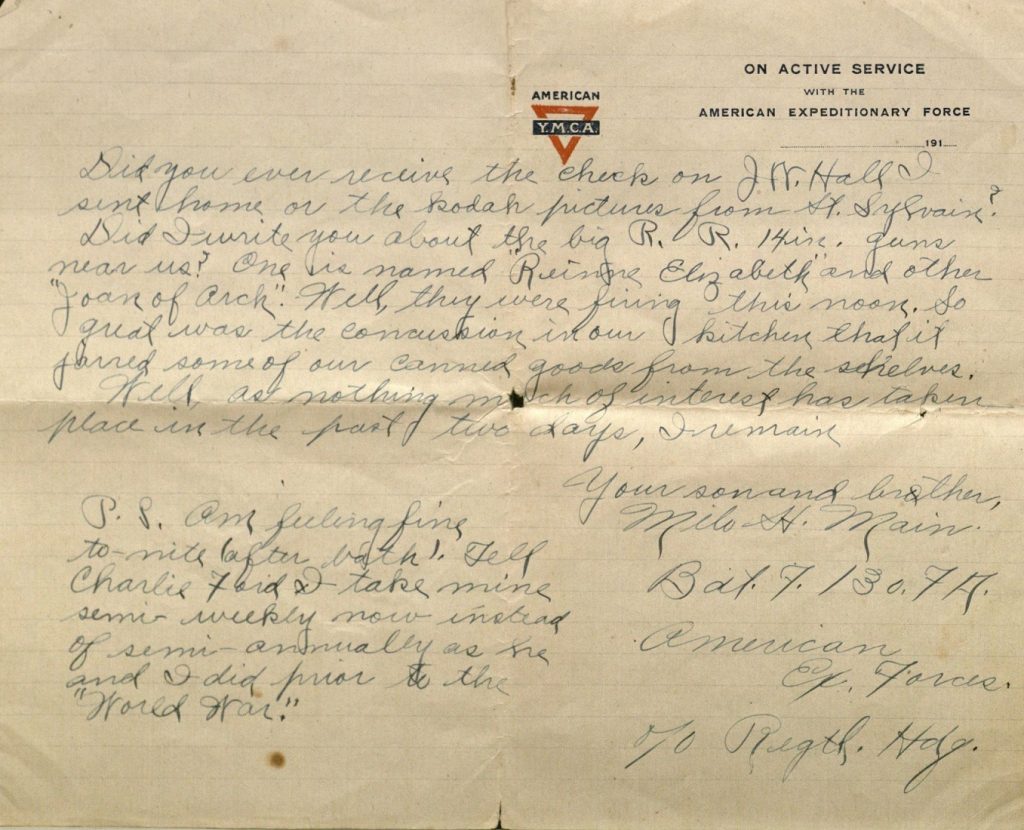 ON ACTIVE SERVICE
WITH THE
AMERICAN EXPEDITIONARY FORCE
191
AMERICAN
Y.M.C.A.
Did you ever receive the check on J.W. Hall I
sent home or the kodak pictures from St. Sylvain?
Did I write you about the big R. R. 14in. guns
near us? One is named "Reinne Elizabeth" and other
"Joan of Arch". Well, they were firing this noon. So
great was the concussion in our kitchen that it
jarred some of our canned goods from the schelves.
Well, as nothing much of interest has taken
place in the past two days, I remain
Your son and brother,
Milo H. Main.
Bat. F. 130. F A.
American
Ex. Forces.
c/o Regtl. Hdq.
P. S. Am feeling fine
to-nite (after bath). Tell
Charlie Ford I take mine
semi-weekly now instead
of semi-annually as he
and I did prior to the
"World War."